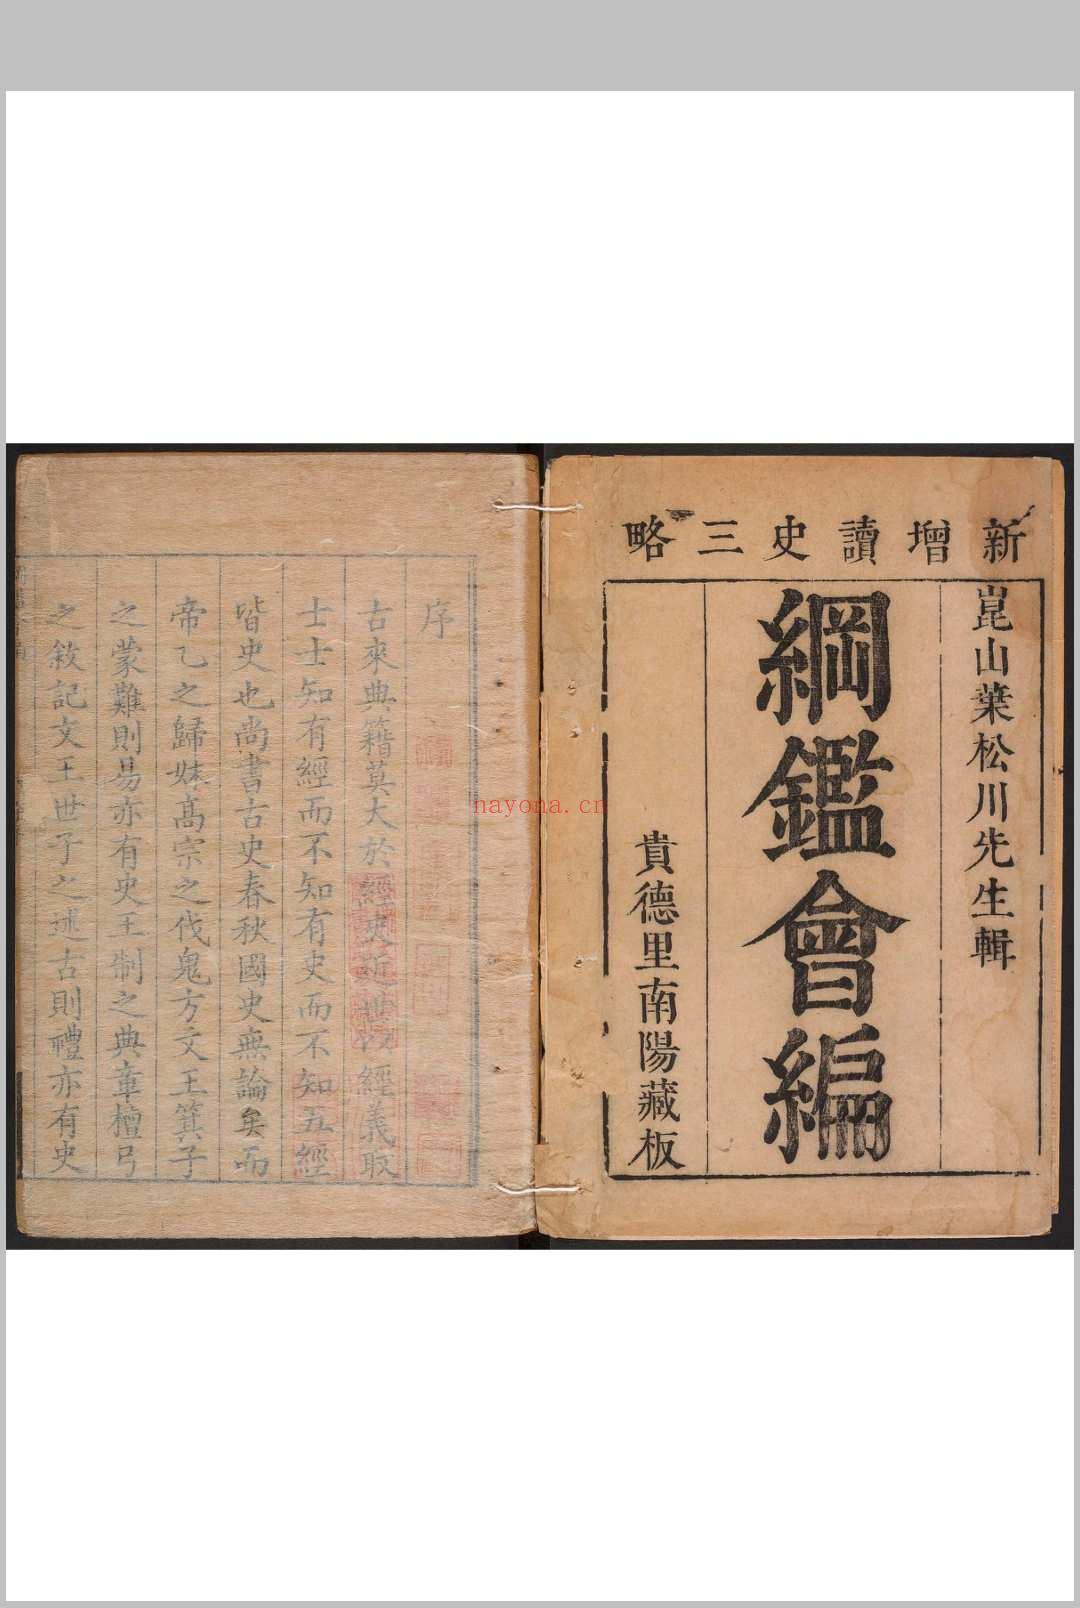 新增讀史三略
崑山葉松川先生輯
綱鑑會編
貴德里南陽藏板
序
古來典籍莫大於經史近世以經義取
士士知有經而不知有史而不知五經
皆史也尚書古史春秋國史無論矣而
帝乙之歸妹高宗之伐鬼方文王箕子
之蒙難則易亦有史王制之典章檀弓
之敘記文王世子之述古則禮亦有史
nayona.cn